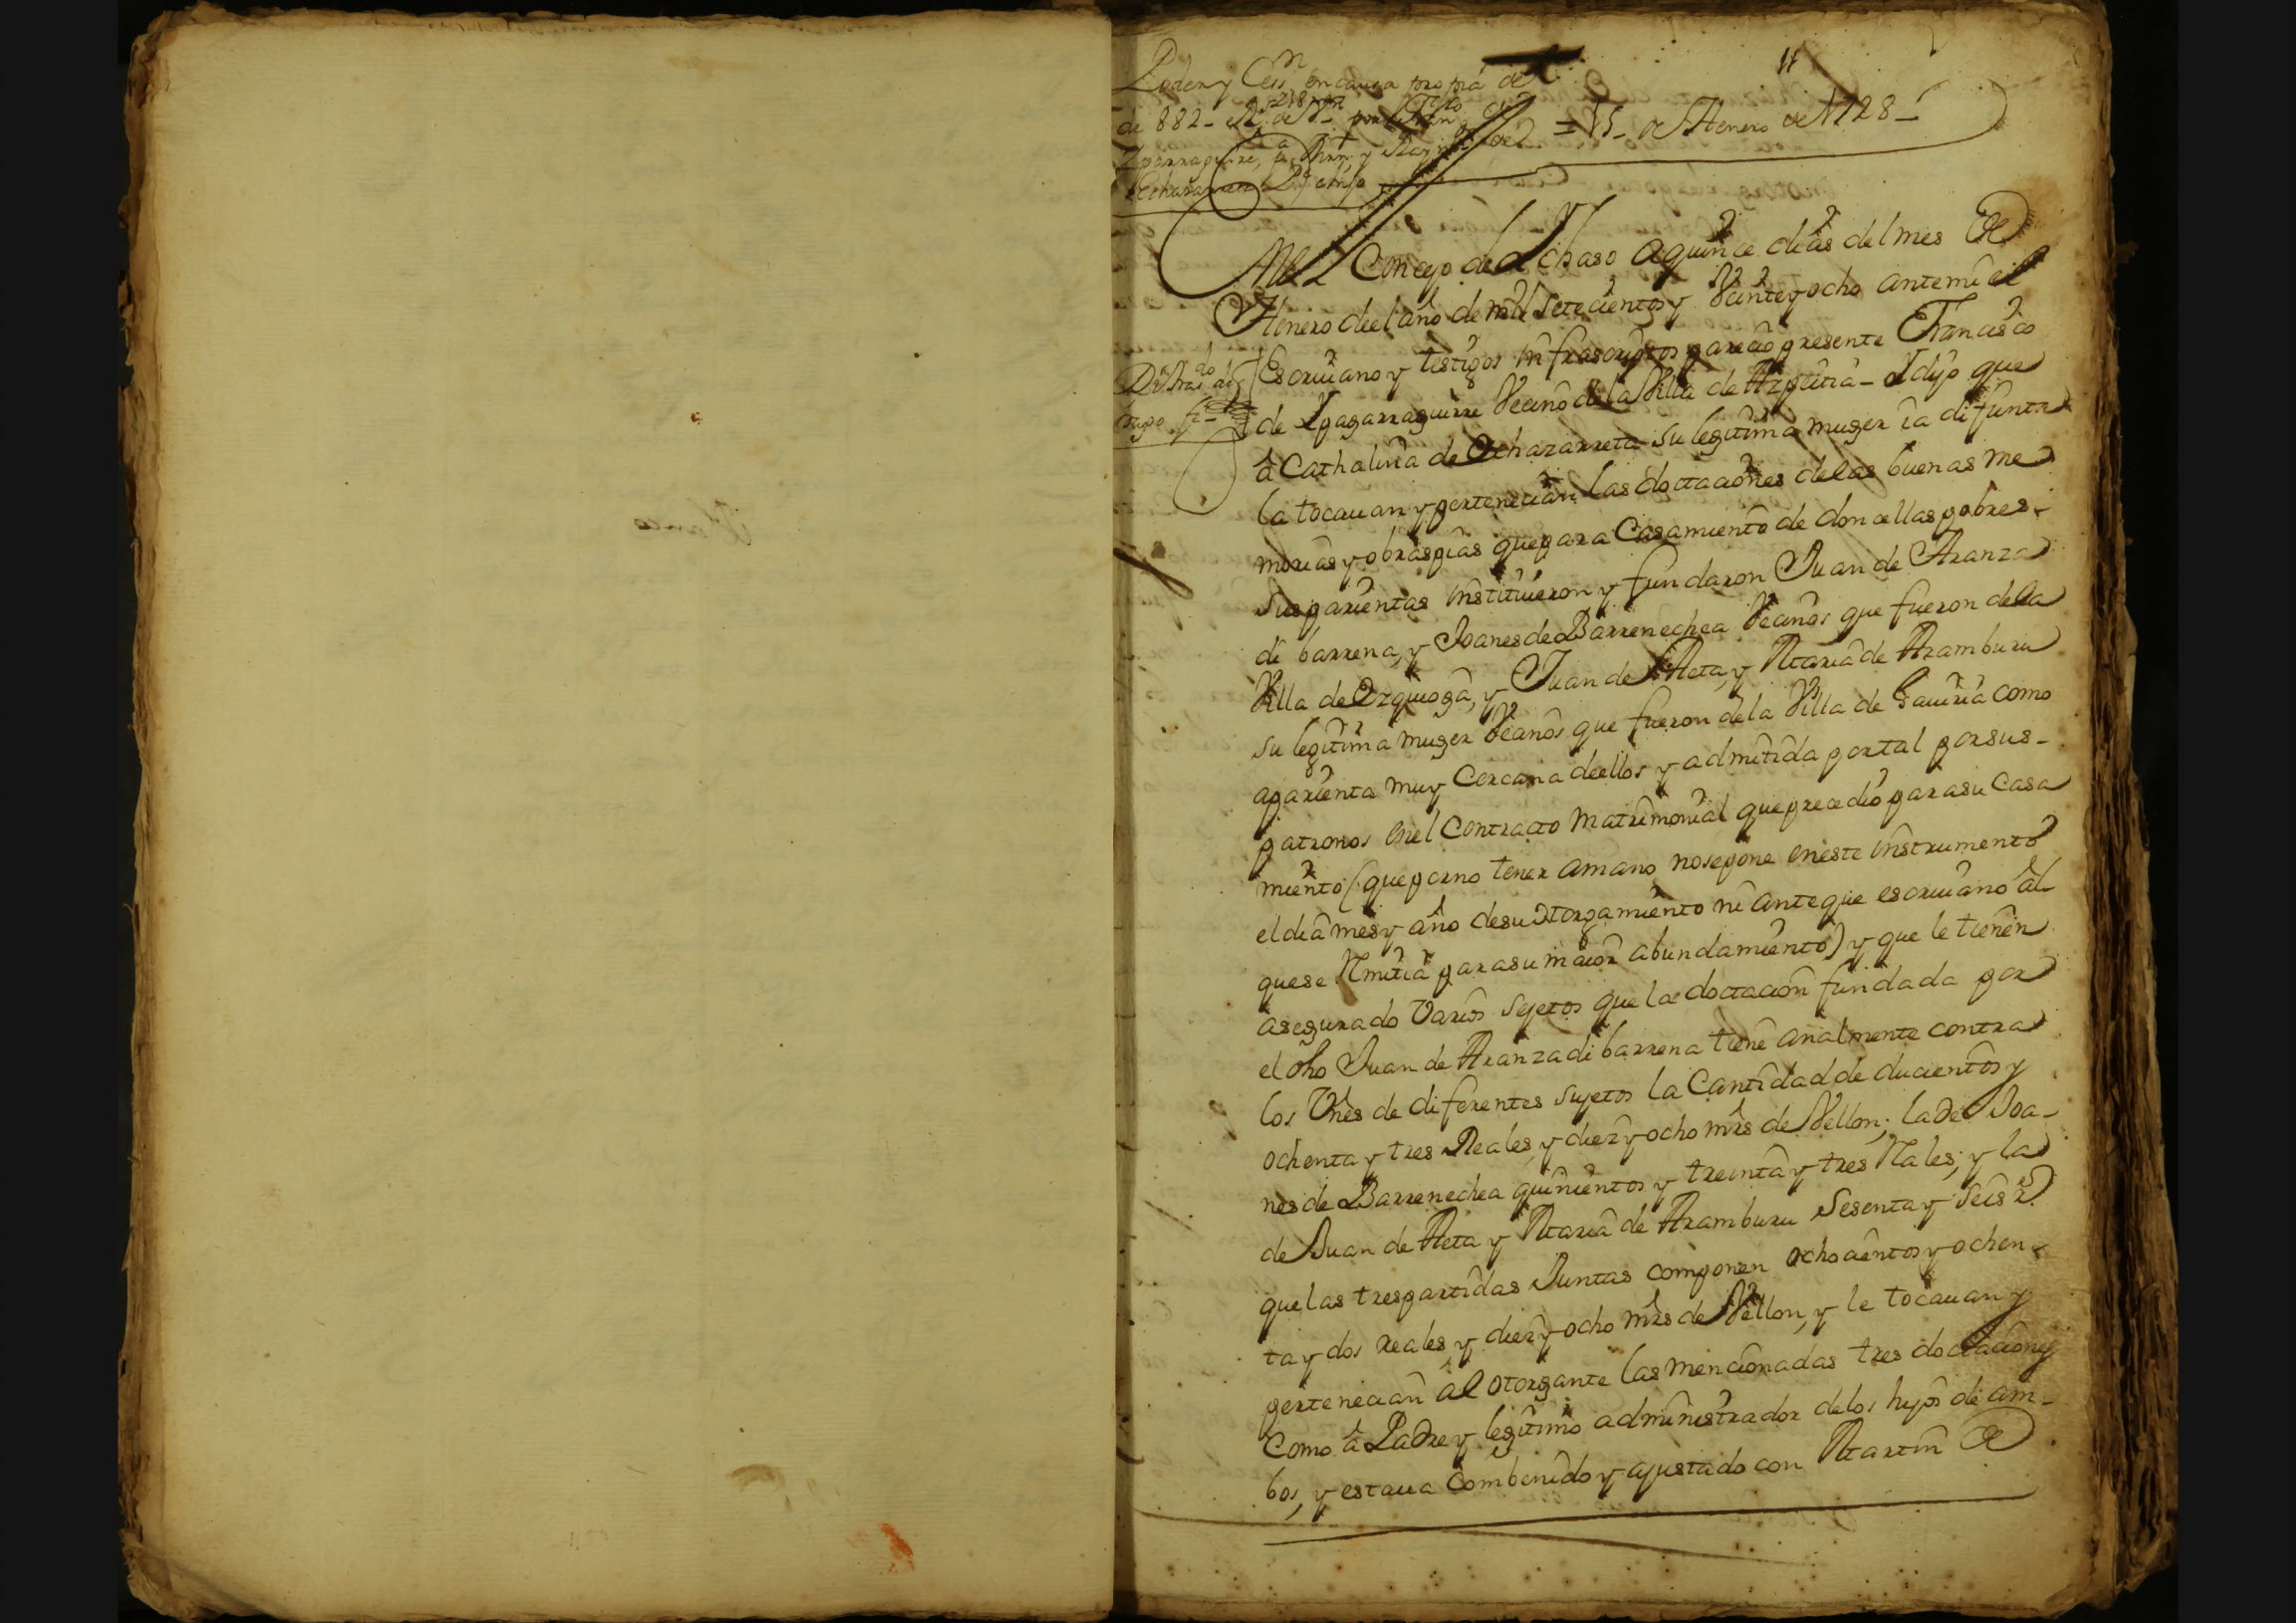 Blanco
11
Poder y Cess.n en causa propria de
de 882 Rs. de Vn. por Fran.co
Yparraguirre, a Mrn. y
= 15 de Henero de 1728
En el Concejo de Ychaso a quince dias del mes de
Henero de el año de mill setecientos y veinte y ocho ante mi el
Escriuano y testigos infrascriptos parecio presente Francisco
de Yparraguirre Vecino de la Villa de Azpeitia y dijo que
â Cathalina de Ochazarreta su legitima muger ia difunta
la tocauan y pertenecian las doctaciones de las buenas me
morias y obras pias que para Casamiento de doncellas pobres
sus parientas instituieron y fundaron Juan de Aranza
di barrena, y Joanes de Barrenechea Vecinos que fueron de la
Villa de Ezquioga, y Juan de Aeta, y Maria de Aramburu
su legitima muger Vecinos que fueron de la Villa de Gauiria como
a parienta muy Cercana de ellos y admitida por tal por sus
patronos en el Contracto matrimonial que precedio para su Casa
miento (que por no tener a mano no se pone en este instrumento
el dia mes y año de su otorgamiento ni ante que escriuano âl
que se remitia para su maior abundamiento) y que le tienen
asegurado Varios sujetos que la doctacion fundada por
el dho Juan de Aranzadi barrena tiene analmente contra
los Vnes de diferentes sujetos la Cantidad de ducientos y
ochenta y tres Reales y diez y ocho mrs de Vellon; la de Joa-
nes de Barrenechea quinientos y treinta y tres Rales; y la
de Juan de Aeta y Maria de Aramburu Sesenta y seis Rs
que las tres partidas Juntas componen ochocientos y ochen
ta y dos reales y diez y ocho mrs de Vellon, y le tocauan y
pertenecian âl otorgante las mencionadas tres doctaciones
Como â Padre y legitimo administrador de los hijos de am-
bos, y estaua Combenido y ajustado con Martin de